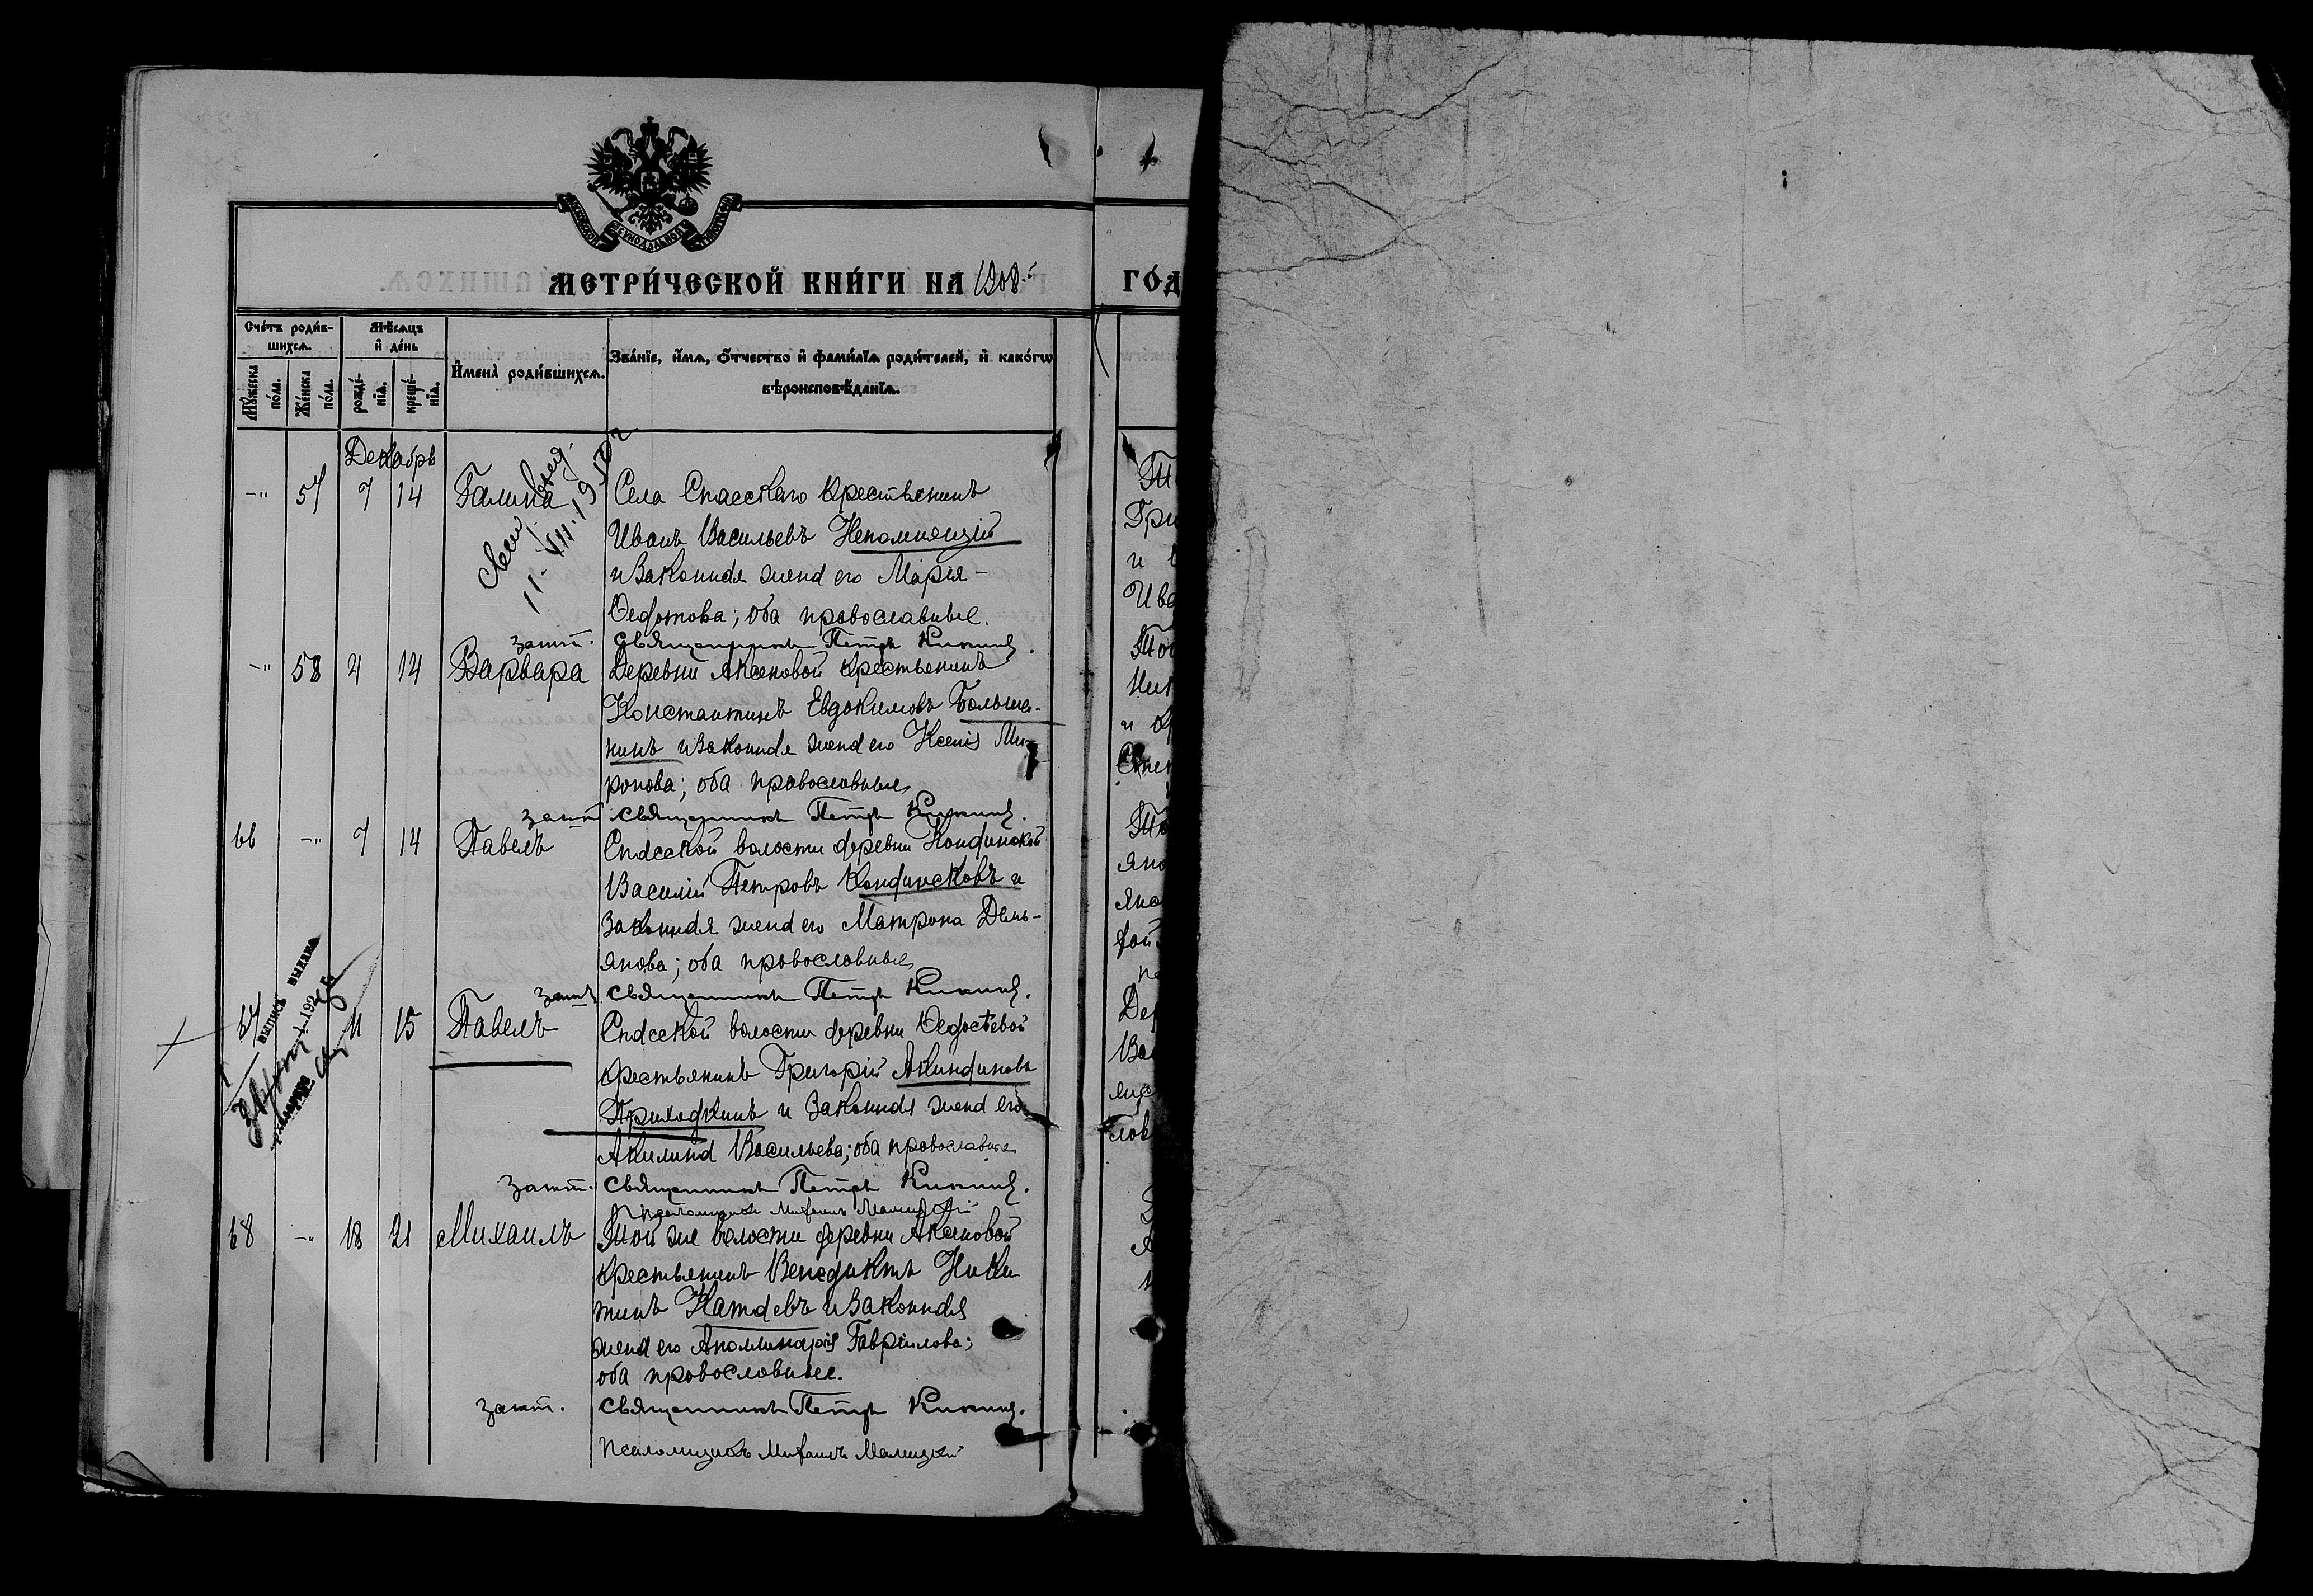 МЕТРИ́ЧЕСКОЙ КНИ́ГИ НА 1908.
ГО́Д
Сче́тъ роди́в-
шихсѧ.
Мѣ́сѧцъ
и҆ де́нь
Мꙋ́жеска
по́ла.
Же́нска
по́ла.
рожде́-
нїѧ.
креще́-
нїѧ.
И҆мена̀ роди́вшихсѧ.
Зва́нїе, и҆́мѧ, ѻ҆́тчество и҆ фами́лїѧ роди́телей, и҆ како́гѡ
вѣроисповѣ́данїѧ.
Декабрь
-" 57 7 14 Галина Села Спасскаго крестьянинъ
Иванъ Васильевъ Непомнящій
и законная жена его Марія
Ѳедотова; оба православные.
11-VIII.1950г
запт. Священникъ Петръ
-" 58 4 14 Варвара Деревни Аксеновой крестьянинъ
Константинъ Евдокимовъ Больша-
нинъ и законная жена его Ксенія Ми-
ронова; оба православные
Священникъ Петръ
66 -" 7 14 Павелъ Спасской волости деревни Кондинской
Василій Петровъ Кондинсковъ и
законная жена его Матрона Демь-
янова; оба православные
Священникъ Петръ
67 11 15 Павелъ Спасской волости деревни Ѳедосѣевой
выпись выдана
крестьянинъ Григорій Акиндиновъ
Приходкинъ и законная жена его
Акилина Васильева; оба православные
Священникъ Петръ
Псаломщикъ Михаилъ
68 -" 18 21 Михаилъ Той же волости деревни Аксеновой
крестьянинъ Венедиктъ Ники-
тинъ Катаевъ и законная
жена его Аполлинарія Гаврилова;
оба православные.
Священникъ Петръ
Псаломщикъ Михаилъ